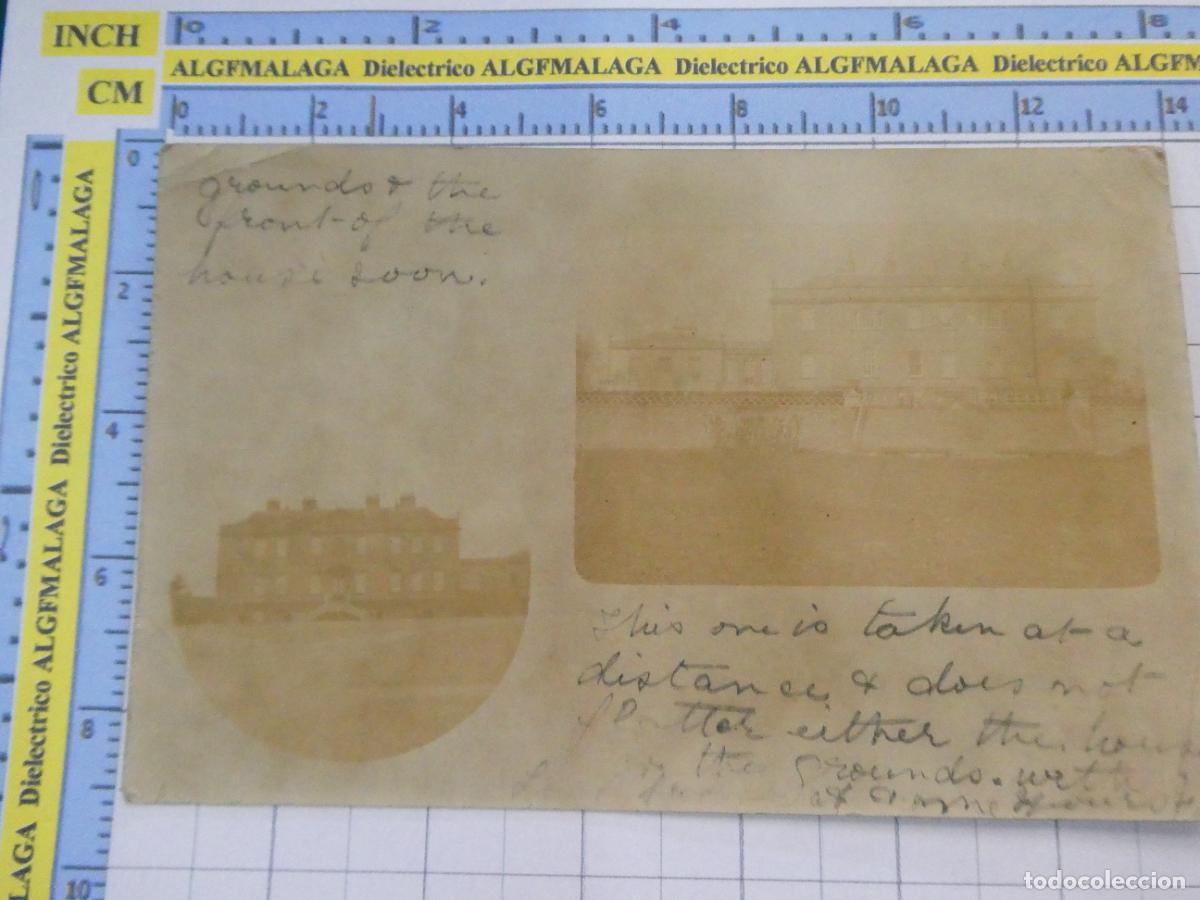 INCH 0 2 4 6 8
ALGFMALAGA Dielectrico ALGFMALAGA Dielectrico ALGFMALAGA Dielectrico ALGFM
CM 0 2 4 6 8 10 12 14
0 2 4 6 8 10
LAGA Dielectrico ALGFMALAGA Dielectrico ALGFMALAGA Dielectrico ALGFMALAGA
grounds & the
front of the
house soon.
This one is taken at a
distance & does not
flatter either the hous
the grounds.
todocoleccion